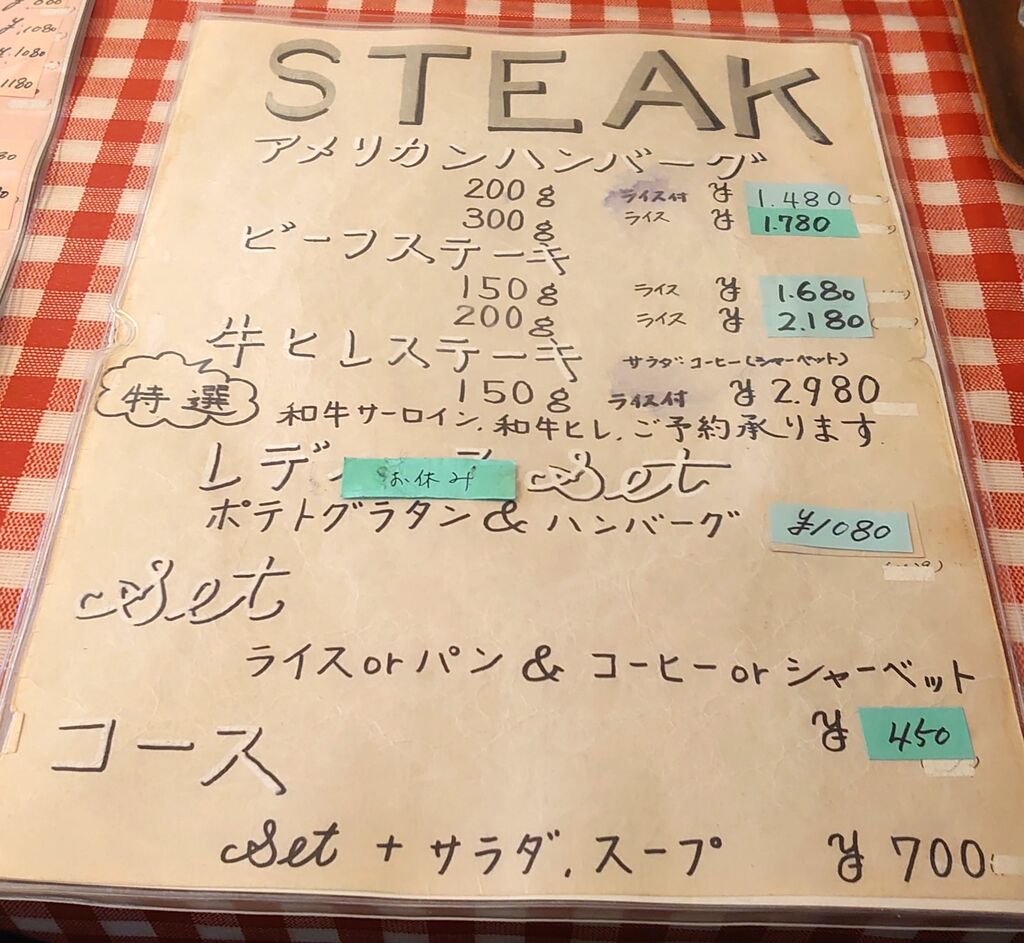 STEAK
アメリカンハンバーグ
200g ライス付 ¥ 1.480
300g ライス ¥ 1.780
ビーフステーキ
150g ライス ¥ 1.680
200g ライス ¥ 2.180
牛ヒレステーキ サラダ・コーヒー(シャーベット)
150g ライス付 ¥2.980
特選 和牛サーロイン, 和牛ヒレ, ご予約承ります
レデ お休み Set
ポテトグラタン & ハンバーグ ¥1080
Set
ライスorパン & コーヒーorシャーベット
¥ 450
コース
Set + サラダ, スープ ¥ 700
¥.1080
¥.1080
1180